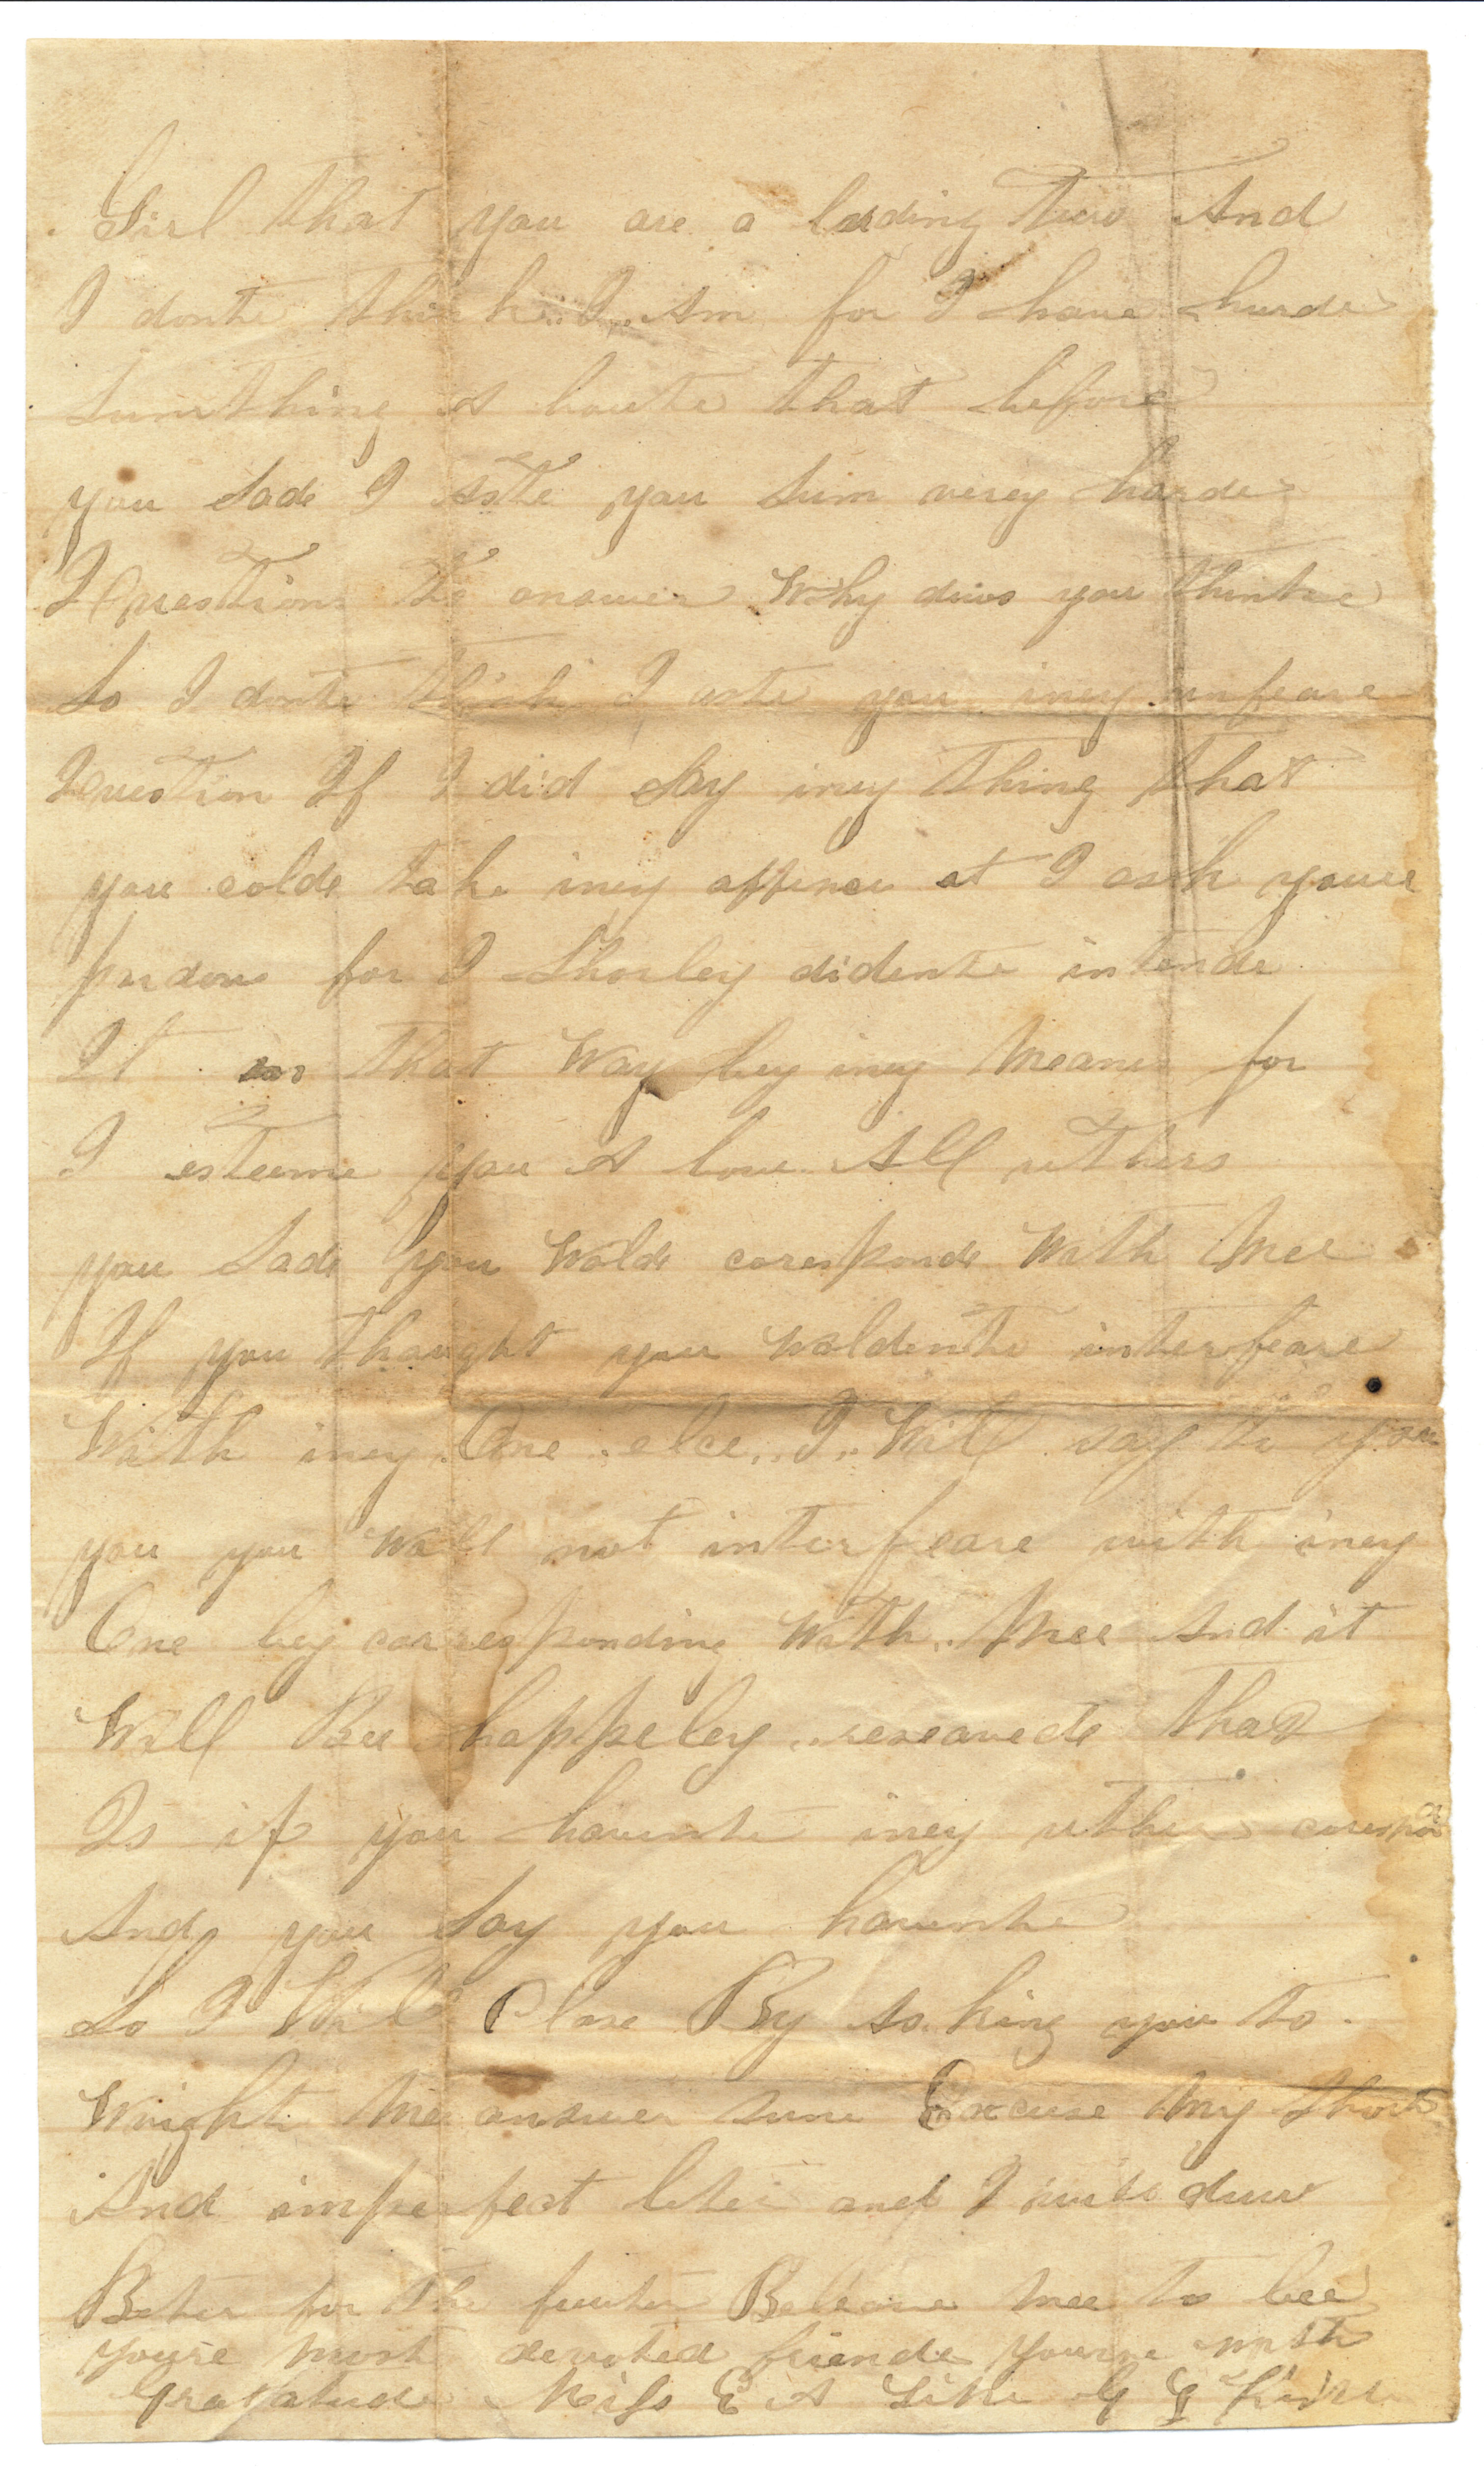 Girl that you are a lerding tuw And
I donte think I Am for I have hurde
sumthing A boute that before
you sade I aste you sum verey harde
Questions to answer Why dius you thinke
So I donte think I aste you iney unfeare
Question If I did Say iney thing that
you colde take iney offence at I ask youre
pardone for I Shorley didente intende
It that Way bey iney Meanes for
I esteeme you A bove All uthers
you Sade you Wolde coresponde With Mee
If you thought you woldente interfeare
With iney One else I Will say to you
you you Will not interfeare with iney
One bey corresponding With Mee And it
Will Bee happeley reseavede that
Is if you havente iney uther corespon
And you Say you havente
So I Will Close By asking you to
Wright Me answer sune Excuse My Short
And imperfect leter and I will duw
Beter for the futer Beleave mee to bee
youre most devoted friende youre with
Gratatude Miss E A